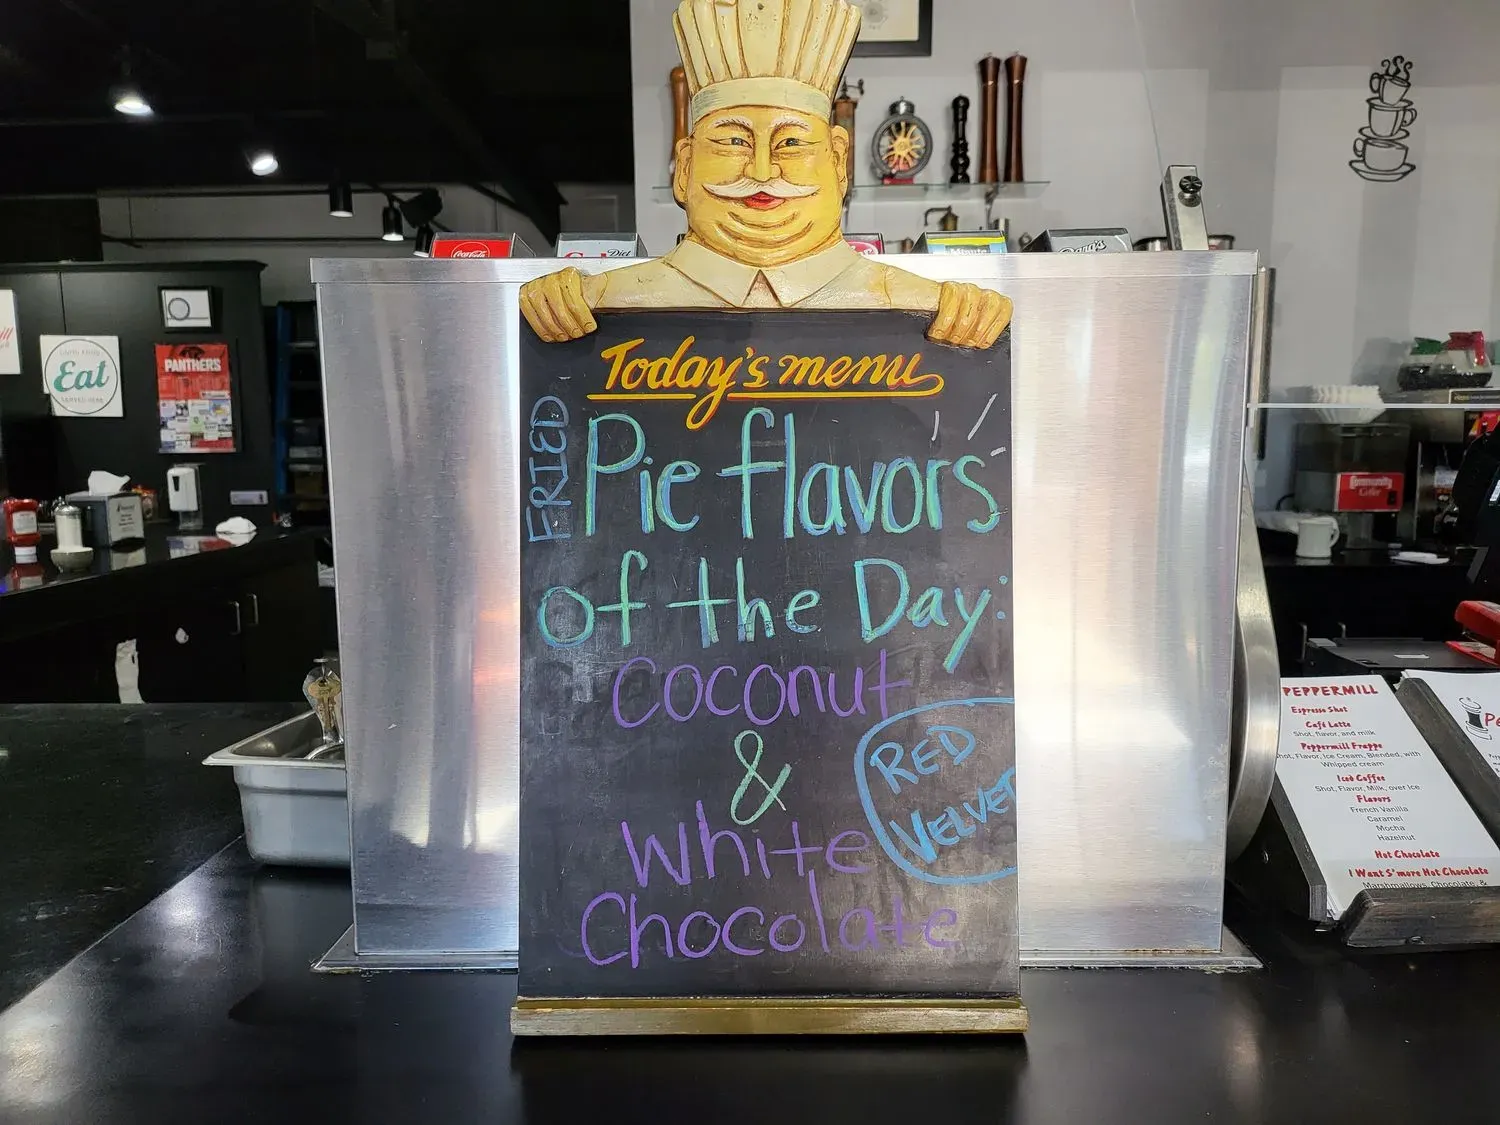 Today's menu
FRIED
Pie flavors
of the Day:
Coconut
&
RED
VELVET
White
Chocolate
Coca-Cola
Diet
Minute
Eat
SERVED HERE
PANTHERS
Community
Coffee
PEPPERMILL
Espresso Shot
Café Latte
Shot, flavor, and milk
Peppermill Frappe
hot, Flavor, Ice Cream, Blended, with
Whipped cream
Iced Coffee
Shot, Flavor, Milk, over Ice
Flavors
French Vanilla
Caramel
Mocha
Hazelnut
Hot Chocolate
I Want S'more Hot Chocolate
Marshmallows, Chocolate, &
Pe